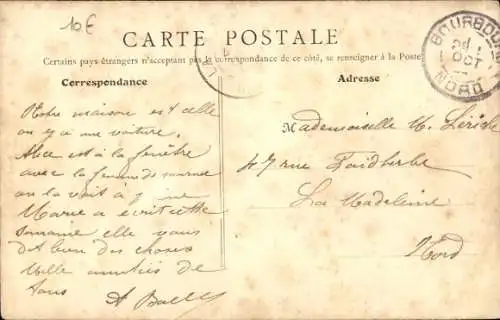 10€
CARTE POSTALE
Certains pays étrangers n'acceptant pas la correspondance de ce côté, se renseigner à la Poste
Correspondance
Adresse
BOURBOU
OCT
NORD
Notre maison est celle
ou y a une voiture.
Alice est à la fenêtre
avec la femme de
on la voit à
Marie a écrit cette
semaine elle vous
dit bien des choses
Mille amitiés de
tous
A
Mademoiselle M.
47 rue Faidherbe
La Madeleine
Nord